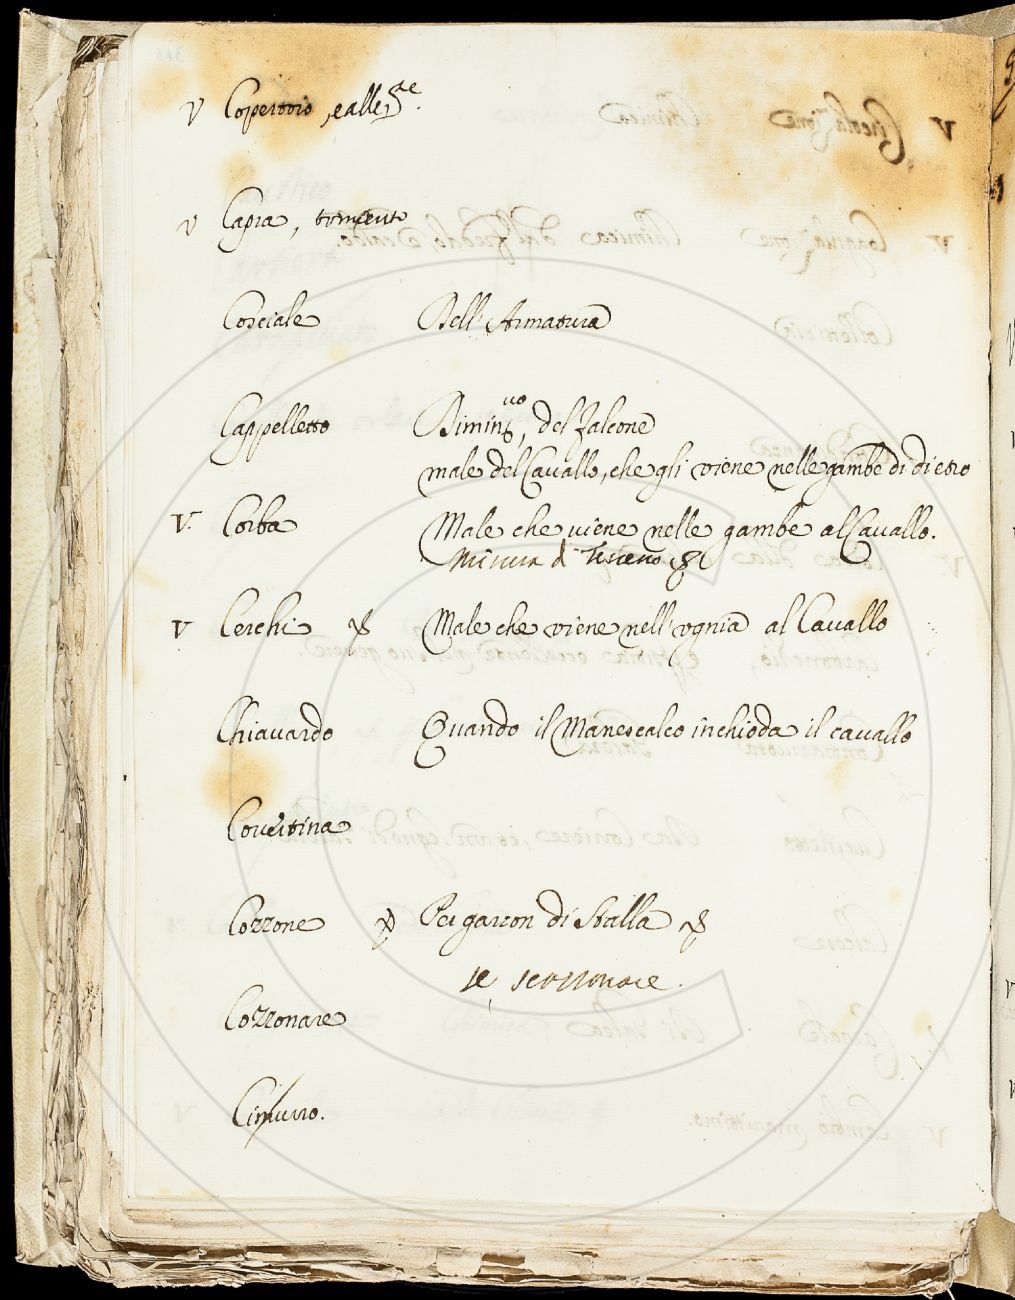 V Copertoio, e alle
V Capra, tormento
Cosciale Dell' Armatura
Cappelletto Dimin.uo, del falcone
male del Cavallo, che gli viene nelle gambe di dietro
V. Corba Male che uiene nelle gambe al Cavallo.
Misura di
V Cerchi Male che viene nell'vgnia al Cavallo
Chiauardo Quando il Manescalco inchioda il cavallo
Couertina
Cozzone Per garzon di stalla
scozzonare.
Cozzonare
Cimurro.